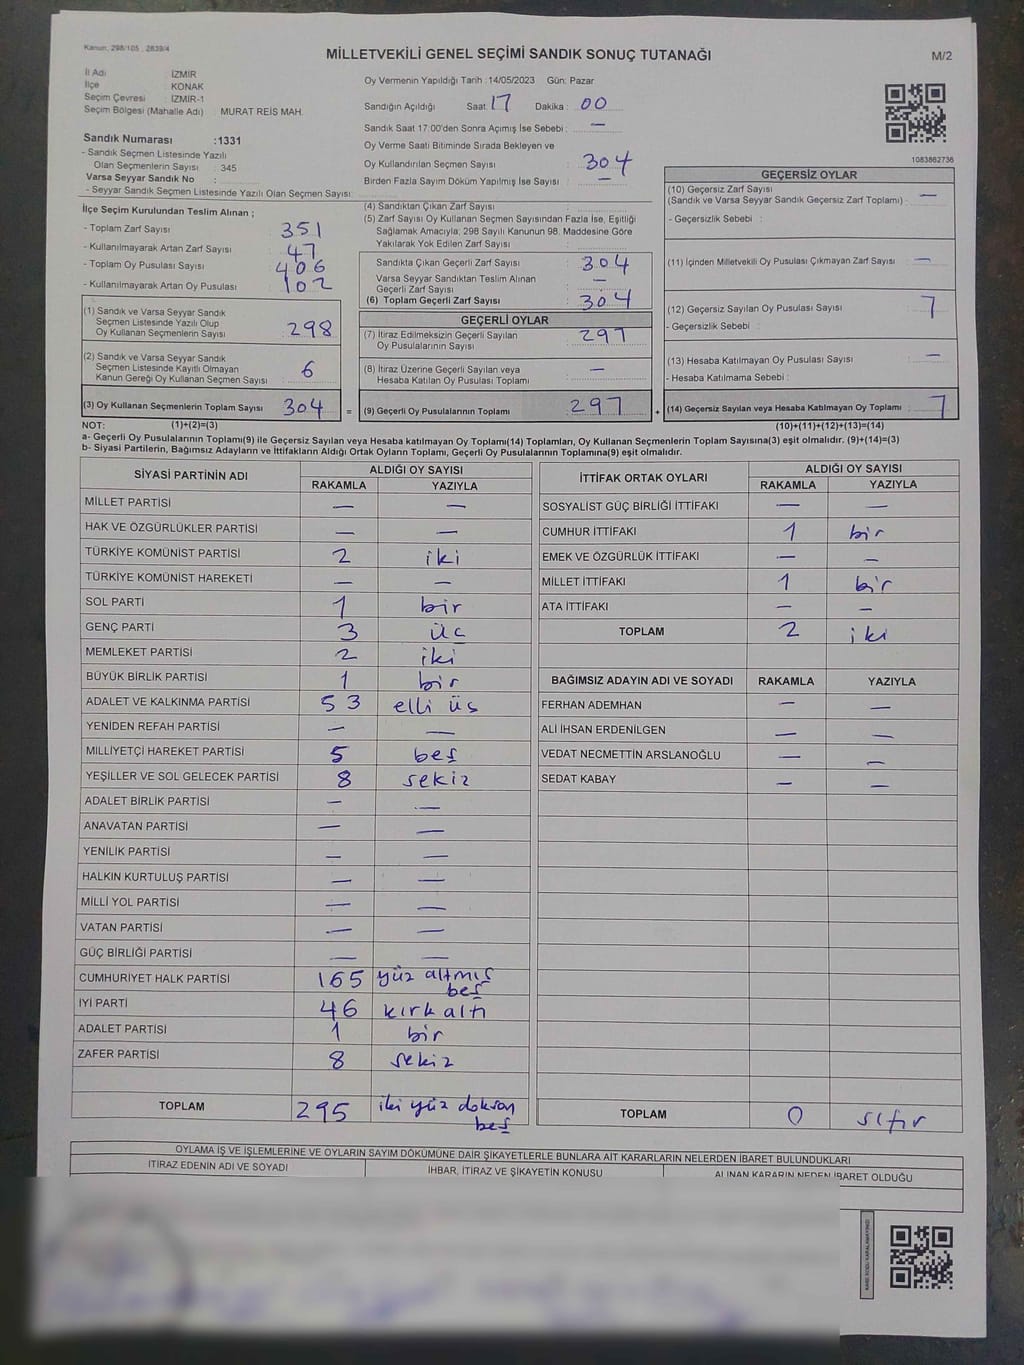 Kanun, 298/105 , 2839/4
MİLLETVEKİLİ GENEL SEÇİMİ SANDIK SONUÇ TUTANAĞI
M/2
İl Adı : İZMİR
İlçe : KONAK
Seçim Çevresi : İZMİR-1
Seçim Bölgesi (Mahalle Adı) : MURAT REİS MAH.
Oy Vermenin Yapıldığı Tarih :14/05/2023 Gün: Pazar
Sandığın Açıldığı Saat: 17 Dakika : 00
Sandık Saat 17:00'den Sonra Açmış İse Sebebi : —
Oy Verme Saati Bitiminde Sırada Bekleyen ve
Oy Kullandırılan Seçmen Sayısı : 304
Birden Fazla Sayım Döküm Yapılmış İse Sayısı : —
1083862736
Sandık Numarası :1331
- Sandık Seçmen Listesinde Yazılı
Olan Seçmenlerin Sayısı : 345
Varsa Seyyar Sandık No :
- Seyyar Sandık Seçmen Listesinde Yazılı Olan Seçmen Sayısı:
İlçe Seçim Kurulundan Teslim Alınan ;
- Toplam Zarf Sayısı : 351
- Kullanılmayarak Artan Zarf Sayısı : 47
- Toplam Oy Pusulası Sayısı : 406
- Kullanılmayarak Artan Oy Pusulası : 102
(1) Sandık ve Varsa Seyyar Sandık
Seçmen Listesinde Yazılı Olup
Oy Kullanan Seçmenlerin Sayısı : 298
(2) Sandık ve Varsa Seyyar Sandık
Seçmen Listesinde Kayıtlı Olmayan
Kanun Gereği Oy Kullanan Seçmen Sayısı : 6
(3) Oy Kullanan Seçmenlerin Toplam Sayısı : 304 =
(4) Sandıktan Çıkan Zarf Sayısı :
(5) Zarf Sayısı Oy Kullanan Seçmen Sayısından Fazla İse, Eşitliği
Sağlamak Amacıyla; 298 Sayılı Kanunun 98. Maddesine Göre
Yakılarak Yok Edilen Zarf Sayısı :
Sandıkta Çıkan Geçerli Zarf Sayısı : 304
Varsa Seyyar Sandıktan Teslim Alınan
Geçerli Zarf Sayısı : —
(6) Toplam Geçerli Zarf Sayısı : 304
GEÇERLİ OYLAR
(7) İtiraz Edilmeksizin Geçerli Sayılan
Oy Pusulalarının Sayısı : 297
(8) İtiraz Üzerine Geçerli Sayılan veya
Hesaba Katılan Oy Pusulası Toplamı : —
(9) Geçerli Oy Pusulalarının Toplamı : 297 +
GEÇERSİZ OYLAR
(10) Geçersiz Zarf Sayısı
(Sandık ve Varsa Seyyar Sandık Geçersiz Zarf Toplamı) : —
- Geçersizlik Sebebi :
(11) İçinden Milletvekili Oy Pusulası Çıkmayan Zarf Sayısı : —
(12) Geçersiz Sayılan Oy Pusulası Sayısı : 7
- Geçersizlik Sebebi :
(13) Hesaba Katılmayan Oy Pusulası Sayısı : —
- Hesaba Katılmama Sebebi :
(14) Geçersiz Sayılan veya Hesaba Katılmayan Oy Toplamı : 7
NOT: (1)+(2)=(3) (10)+(11)+(12)+(13)=(14)
a- Geçerli Oy Pusulalarının Toplamı(9) ile Geçersiz Sayılan veya Hesaba katılmayan Oy Toplamı(14) Toplamları, Oy Kullanan Seçmenlerin Toplam Sayısına(3) eşit olmalıdır. (9)+(14)=(3)
b- Siyasi Partilerin, Bağımsız Adayların ve İttifakların Aldığı Ortak Oyların Toplamı, Geçerli Oy Pusulalarının Toplamına(9) eşit olmalıdır.
SİYASİ PARTİNİN ADI ALDIĞI OY SAYISI
RAKAMLA YAZIYLA
MİLLET PARTİSİ — —
HAK VE ÖZGÜRLÜKLER PARTİSİ — —
TÜRKİYE KOMÜNİST PARTİSİ 2 iki
TÜRKİYE KOMÜNİST HAREKETİ — —
SOL PARTİ 1 bir
GENÇ PARTİ 3 üç
MEMLEKET PARTİSİ 2 iki
BÜYÜK BİRLİK PARTİSİ 1 bir
ADALET VE KALKINMA PARTİSİ 53 elli üç
YENİDEN REFAH PARTİSİ — —
MİLLİYETÇİ HAREKET PARTİSİ 5 beş
YEŞİLLER VE SOL GELECEK PARTİSİ 8 sekiz
ADALET BİRLİK PARTİSİ — —
ANAVATAN PARTİSİ — —
YENİLİK PARTİSİ — —
HALKIN KURTULUŞ PARTİSİ — —
MİLLİ YOL PARTİSİ — —
VATAN PARTİSİ — —
GÜÇ BİRLİĞİ PARTİSİ — —
CUMHURİYET HALK PARTİSİ 165 yüz altmış
beş
İYİ PARTİ 46 kırk altı
ADALET PARTİSİ 1 bir
ZAFER PARTİSİ 8 sekiz
TOPLAM 295 iki yüz doksan
beş
İTTİFAK ORTAK OYLARI ALDIĞI OY SAYISI
RAKAMLA YAZIYLA
SOSYALİST GÜÇ BİRLİĞİ İTTİFAKI — —
CUMHUR İTTİFAKI 1 bir
EMEK VE ÖZGÜRLÜK İTTİFAKI — —
MİLLET İTTİFAKI 1 bir
ATA İTTİFAKI — —
TOPLAM 2 iki
BAĞIMSIZ ADAYIN ADI VE SOYADI RAKAMLA YAZIYLA
FERHAN ADEMHAN — —
ALİ İHSAN ERDENİLGEN — —
VEDAT NECMETTİN ARSLANOĞLU — —
SEDAT KABAY — —
TOPLAM 0 sıfır
OYLAMA İŞ VE İŞLEMLERİNE VE OYLARIN SAYIM DÖKÜMÜNE DAİR ŞİKAYETLERLE BUNLARA AİT KARARLARIN NELERDEN İBARET BULUNDUKLARI
İTİRAZ EDENİN ADI VE SOYADI İHBAR, İTİRAZ VE ŞİKAYETİN KONUSU ALINAN KARARIN NEDEN İBARET OLDUĞU